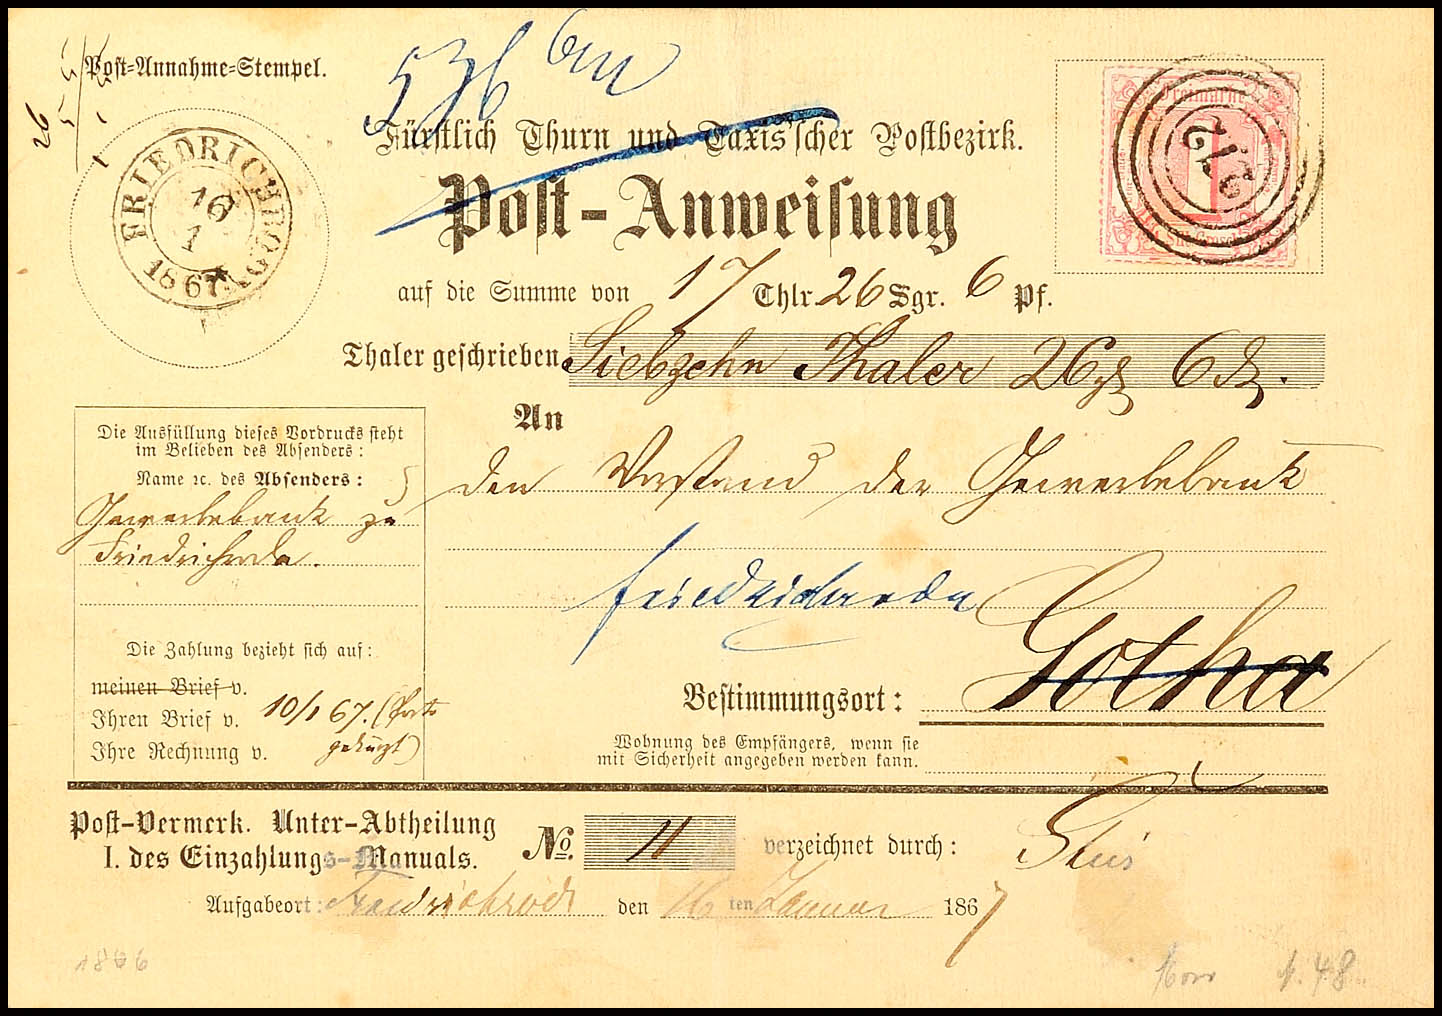 Post-Annahme-Stempel.
FRIEDRICHRODA
16
1
1867
Fürstlich Thurn und Taxis'scher Postbezirk.
Post-Anweisung
Freimarke
1
312
auf die Summe von 17 Thlr. 26 Sgr. 6 Pf.
Thaler geschrieben Siebzehn Thaler 26 gl 6 d.
An
den Vorstand der Gewerbebank
Friedrichroda
Gotha
Bestimmungsort:
Wohnung des Empfängers, wenn sie
mit Sicherheit angegeben werden kann.
Die Ausfüllung dieses Vordrucks steht
im Belieben des Absenders:
Name ꝛc. des Absenders:
Gewerbebank zu
Friedrichroda.
Die Zahlung bezieht sich auf:
meinen Brief v.
Ihren Brief v. 10/1 67. (Porto
Ihre Rechnung v. gekürzt)
Post-Vermerk. Unter-Abtheilung
I. des Einzahlungs-Manuals.
No. 11 verzeichnet durch:
Aufgabeort: Friedrichroda den 16 ten Januar 1867
1866
1.48